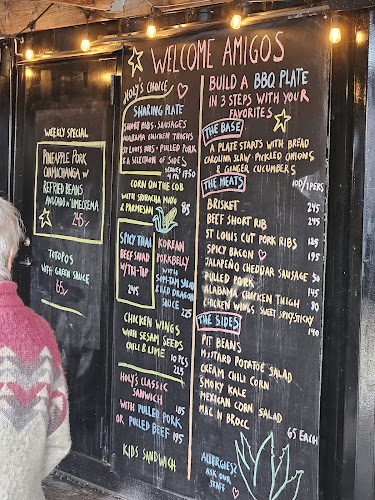 WEEKLY SPECIAL
PINEAPPLE PORK
CHIMICHANGA W/
REFRIED BEANS
AVOCADO &
245/-
TOTOPOS
WITH GREEN SAUCE
65/-
WELCOME AMIGOS
HOLY'S CHOICE
SHARING PLATE
SHORT RIBS · SAUSAGES
ALABAMA CHICKEN THIGHS
ST LOUIS RIBS · PULLED PORK
& A SELECTION OF SIDES
SERVES
CORN ON THE COB
WITH SRIRACHA MAYO
& PARMESAN
SPICY THAI
BEEF SALAD
245
KOREAN
PORKBELLY
WITH
SOM-TAM SALAD
& RED DRAGON
SAUCE
225
CHICKEN WINGS
WITH SESAM SEEDS
CHILI & LIME
10 PCS
225
HOLY'S CLASSIC
SANWICH
WITH PULLED PORK 185
OR PULLED BEEF 195
KIDS SANDWICH
BUILD A BBQ PLATE
IN 3 STEPS WITH YOUR
FAVORITES
THE BASE
A PLATE STARTS WITH BREAD
CAROLINA SLAW · PICKLED ONIONS
& GINGER CUCUMBERS
THE MEATS
100/1PERS
BRISKET 245
BEEF SHORT RIB 245
ST LOUIS CUT PORK RIBS 185
SPICY BACON 195
JALAPEÑO CHEDDAR SAUSAGE
PULLED PORK
ALABAMA CHICKEN THIGH
CHICKEN WINGS SWEET SPICY STICKY
140
THE SIDES
PIT BEANS
MUSTARD POTATOE SALAD
CREAM CHILI CORN
SMOKY KALE
MEXICAN CORN SALAD
MAC N BROCC
65 EACH
ALLERGIES?
ASK OUR
STAFF